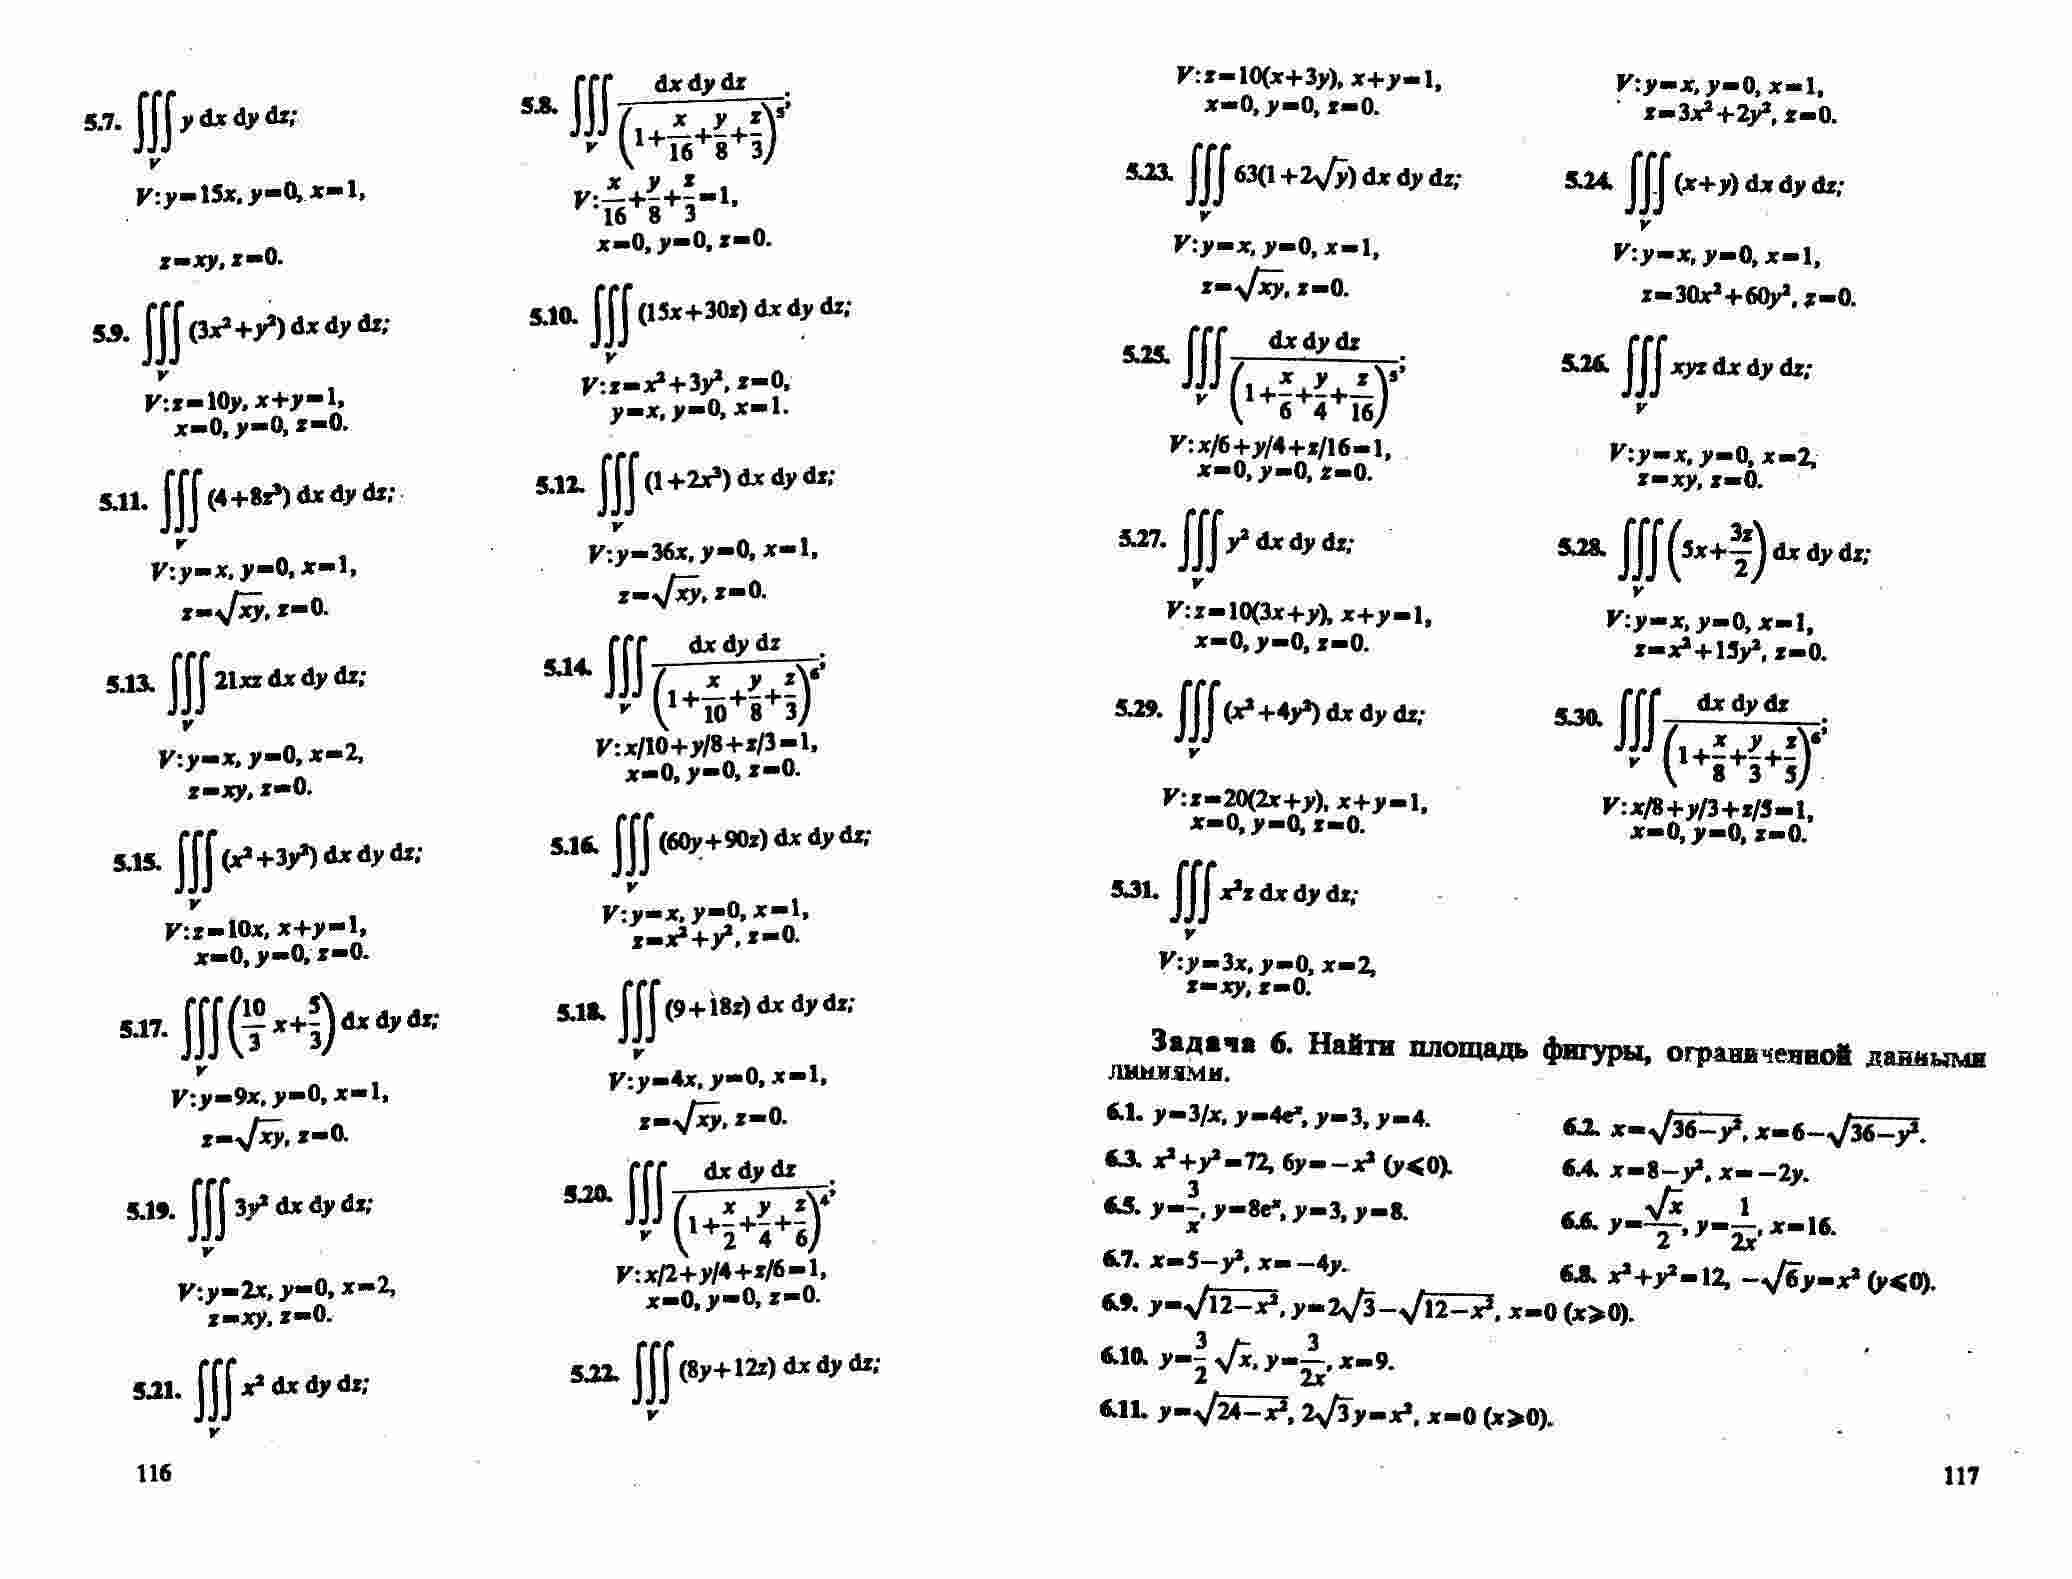 5.7. ∭_V y dx dy dz;
V: y=15x, y=0, x=1,
z=xy, z=0.
5.8. ∭_V dx dy dz / (1+x/16+y/8+z/3)^5;
V: x/16+y/8+z/3=1,
x=0, y=0, z=0.
5.9. ∭_V (3x²+y²) dx dy dz;
V: z=10y, x+y=1,
x=0, y=0, z=0.
5.10. ∭_V (15x+30z) dx dy dz;
V: z=x²+3y², z=0,
y=x, y=0, x=1.
5.11. ∭_V (4+8z³) dx dy dz;
V: y=x, y=0, x=1,
z=√xy, z=0.
5.12. ∭_V (1+2x³) dx dy dz;
V: y=36x, y=0, x=1,
z=√xy, z=0.
5.13. ∭_V 21xz dx dy dz;
V: y=x, y=0, x=2,
z=xy, z=0.
5.14. ∭_V dx dy dz / (1+x/10+y/8+z/3)^6;
V: x/10+y/8+z/3=1,
x=0, y=0, z=0.
5.15. ∭_V (x²+3y²) dx dy dz;
V: z=10x, x+y=1,
x=0, y=0, z=0.
5.16. ∭_V (60y+90z) dx dy dz;
V: y=x, y=0, x=1,
z=x²+y², z=0.
5.17. ∭_V (10/3 x+5/3) dx dy dz;
V: y=9x, y=0, x=1,
z=√xy, z=0.
5.18. ∭_V (9+18z) dx dy dz;
V: y=4x, y=0, x=1,
z=√xy, z=0.
5.19. ∭_V 3y² dx dy dz;
V: y=2x, y=0, x=2,
z=xy, z=0.
5.20. ∭_V dx dy dz / (1+x/2+y/4+z/6)^4;
V: x/2+y/4+z/6=1,
x=0, y=0, z=0.
5.21. ∭_V x² dx dy dz;
5.22. ∭_V (8y+12z) dx dy dz;
116
V: z=10(x+3y), x+y=1,
x=0, y=0, z=0.
V: y=x, y=0, x=1,
z=3x²+2y², z=0.
5.23. ∭_V 63(1+2√y) dx dy dz;
V: y=x, y=0, x=1,
z=√xy, z=0.
5.24. ∭_V (x+y) dx dy dz;
V: y=x, y=0, x=1,
z=30x²+60y², z=0.
5.25. ∭_V dx dy dz / (1+x/6+y/4+z/16)^5;
V: x/6+y/4+z/16=1,
x=0, y=0, z=0.
5.26. ∭_V xyz dx dy dz;
V: y=x, y=0, x=2,
z=xy, z=0.
5.27. ∭_V y² dx dy dz;
V: z=10(3x+y), x+y=1,
x=0, y=0, z=0.
5.28. ∭_V (5x+3z/2) dx dy dz;
V: y=x, y=0, x=1,
z=x²+15y², z=0.
5.29. ∭_V (x²+4y²) dx dy dz;
V: z=20(2x+y), x+y=1,
x=0, y=0, z=0.
5.30. ∭_V dx dy dz / (1+x/8+y/3+z/5)^6;
V: x/8+y/3+z/5=1,
x=0, y=0, z=0.
5.31. ∭_V x²z dx dy dz;
V: y=3x, y=0, x=2,
z=xy, z=0.
Задача 6. Найти площадь фигуры, ограниченной данными
линиями.
6.1. y=3/x, y=4eˣ, y=3, y=4.
6.2. x=√(36−y²), x=6−√(36−y²).
6.3. x²+y²=72, 6y=−x² (y⩽0).
6.4. x=8−y², x=−2y.
6.5. y=3/x, y=8eˣ, y=3, y=8.
6.6. y=√x/2, y=1/2x, x=16.
6.7. x=5−y², x=−4y.
6.8. x²+y²=12, −√6y=x² (y⩽0).
6.9. y=√(12−x²), y=2√3−√(12−x²), x=0 (x⩾0).
6.10. y=3/2 √x, y=3/2x, x=9.
6.11. y=√(24−x²), 2√3y=x², x=0 (x⩾0).
117